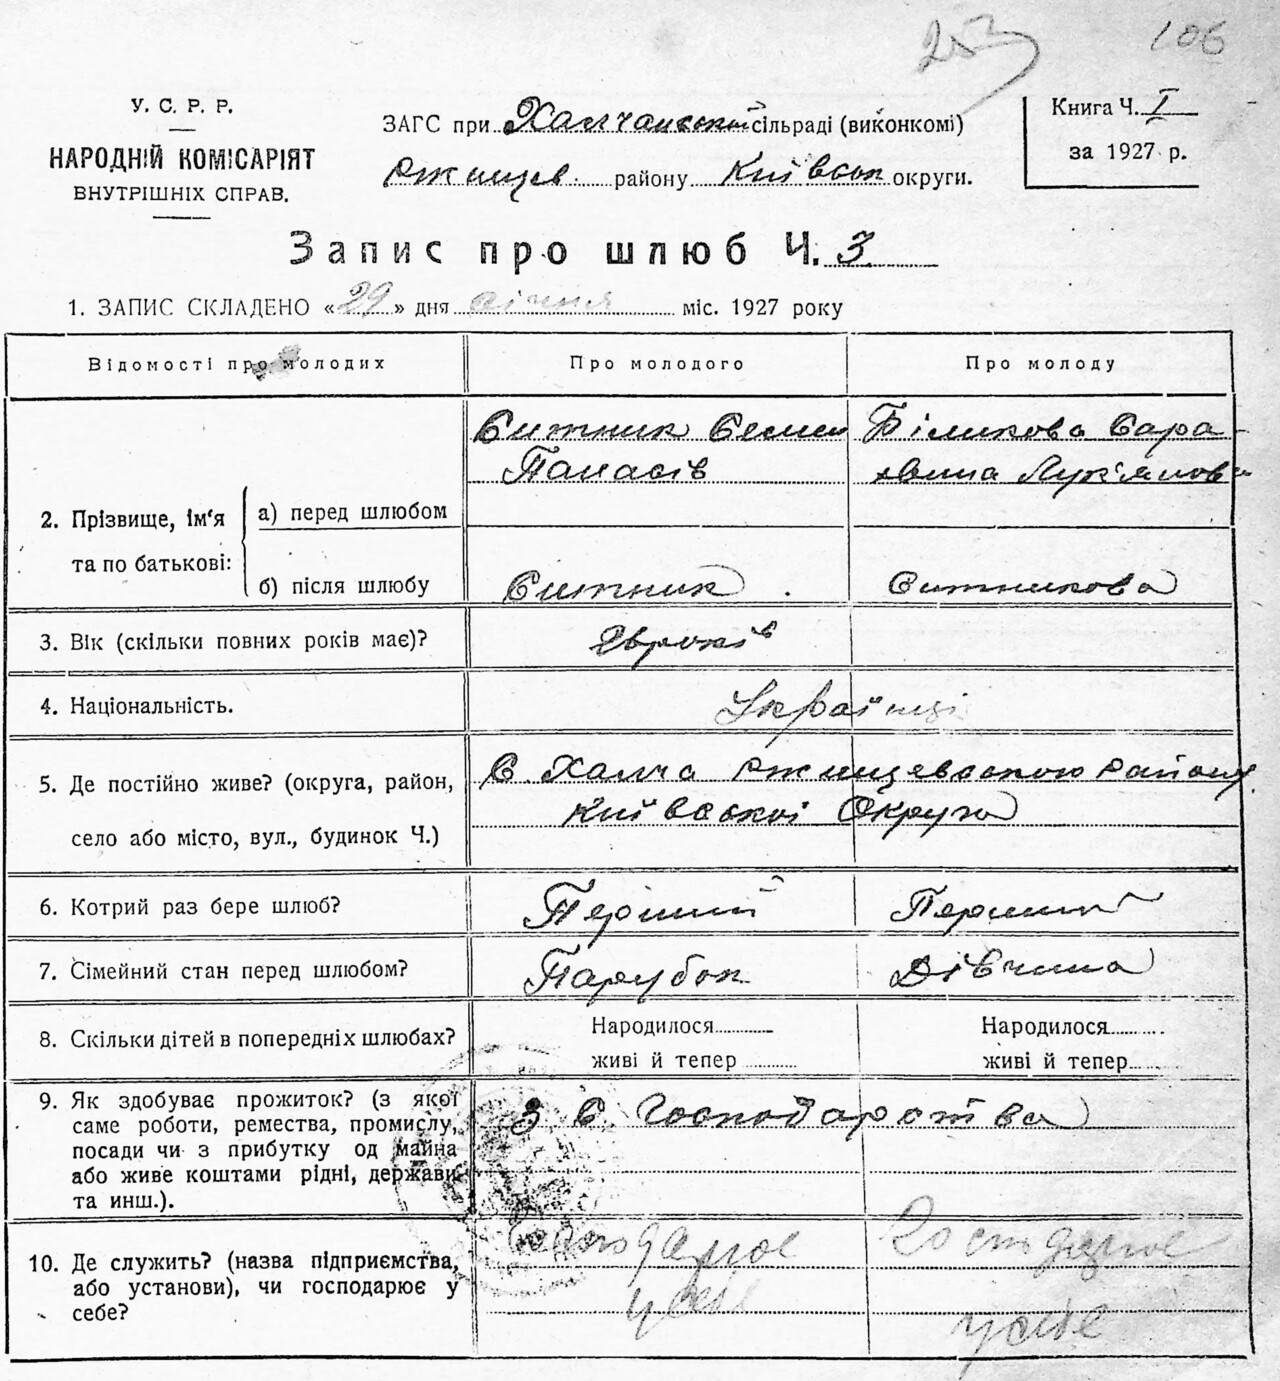 253 106
У. С. Р. Р.
НАРОДНІЙ КОМІСАРІЯТ
ВНУТРІШНІХ СПРАВ.
ЗАГС при Халчанській сільраді (виконкомі)
Ржищев району Київськ округи.
Книга Ч. I
за 1927 р.
Запис про шлюб Ч. 3
1. ЗАПИС СКЛАДЕНО «29» дня січня міс. 1927 року
Відомості про молодих Про молодого Про молоду
Ситник Семен Біликова Сара-
Панасів Лук'янов
2. Прізвище, ім'я а) перед шлюбом
та по батькові:
б) після шлюбу Ситник Ситникова
3. Вік (скільки повних років має)? років
4. Національність. Українці
5. Де постійно живе? (округа, район, С. Халча Ржищевського району
село або місто, вул., будинок Ч.) Київської Округи
6. Котрий раз бере шлюб? Перший Перший
7. Сімейний стан перед шлюбом? Парубок Дівчина
8. Скільки дітей в попередніх шлюбах? Народилося Народилося
живі й тепер живі й тепер
9. Як здобуває прожиток? (з якої З С Господарства
саме роботи, ремества, промислу,
посади чи з прибутку од майна
або живе коштами рідні, держави
та инш.).
10. Де служить? (назва підприємства, Господарює Господарює
або установи), чи господарює у у себе
себе? у себе